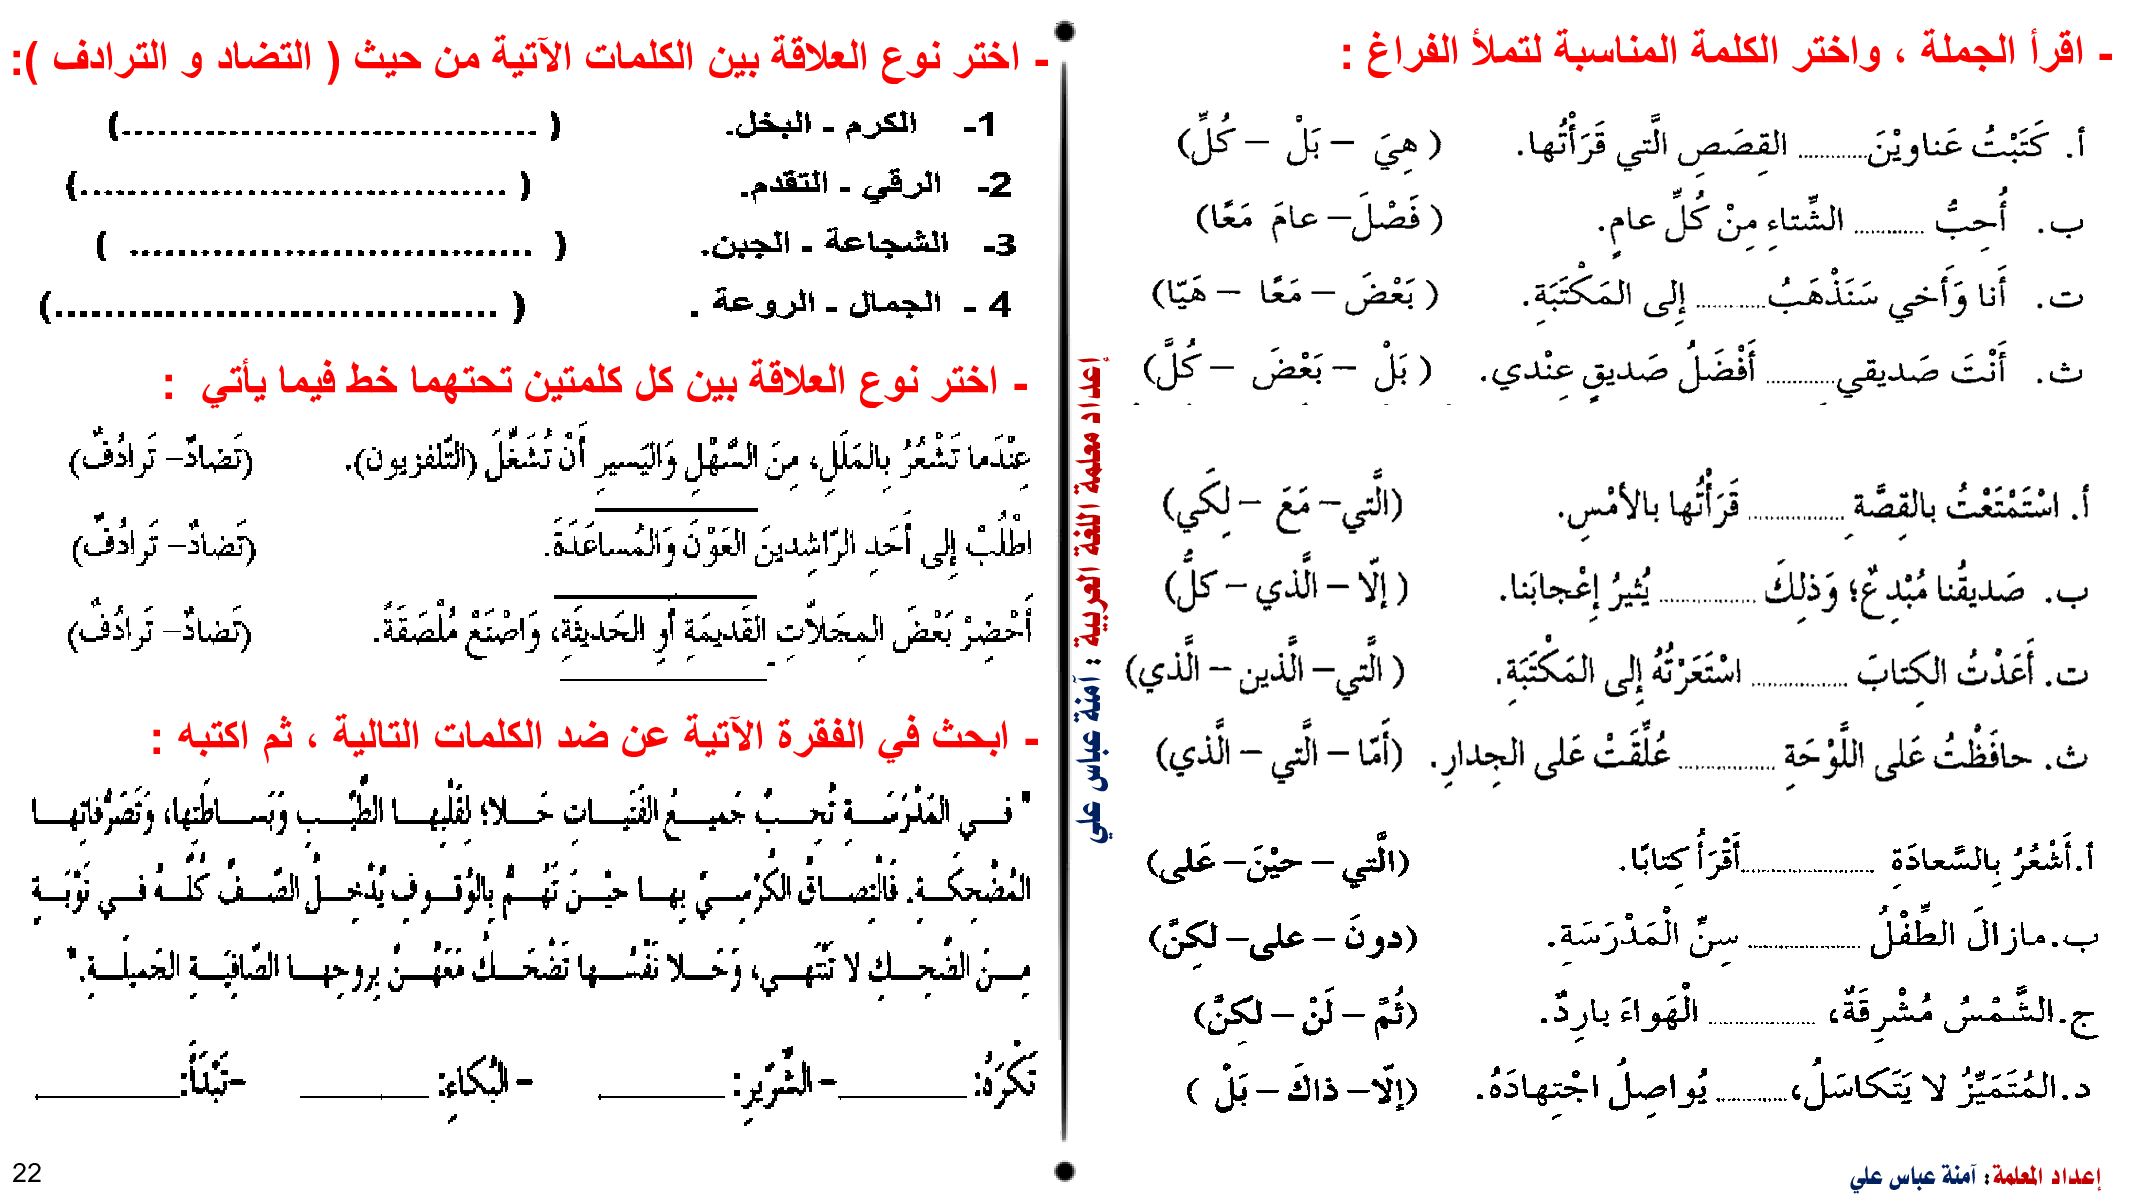 - اقرأ الجملة ، واختر الكلمة المناسبة لتملأ الفراغ :
أ. كَتَبْتُ عَناوِيْنَ............ القِصَصِ الَّتي قَرَأْتُها. ( هِيَ – بَلْ – كُلِّ)
ب. أُحِبُّ ............ الشِّتاءِ مِنْ كُلِّ عامٍ. ( فَصْلَ– عامَ مَعًا)
ت. أَنا وَأَخي سَنَذْهَبُ............ إِلى المَكْتَبَةِ. ( بَعْضَ – مَعًا – هَيّا)
ث. أَنْتَ صَديقي............ أَفْضَلُ صَديقٍ عِنْدي. ( بَلْ – بَعْضَ – كُلَّ)
أ. اسْتَمْتَعْتُ بالقِصَّةِ ................ قَرَأْتُها بالأمْسِ. (الَّتي– مَعَ – لِكَي)
ب. صَديقُنا مُبْدِعٌ؛ وَذلِكَ ................ يُثيرُ إِعْجابَنا. ( إلّا – الَّذي – كلُّ)
ت. أَعَدْتُ الكِتابَ ................ اسْتَعَرْتُهُ إِلى المَكْتَبَةِ. ( الَّتي– الَّذين – الَّذي)
ث. حافَظْتُ عَلى اللَّوْحَةِ ................ عُلِّقَتْ عَلى الجِدارِ. (أَمّا – الَّتي – الَّذي)
أ.أَشْعُرُ بِالسَّعادَةِ ......................أَقْرَأُ كِتابًا. (الَّتي – حيْنَ– عَلى)
ب.مازالَ الطِّفْلُ ................... سِنِّ الْمَدْرَسَةِ. (دونَ – على– لكِنَّ)
ج.الشَّمْسُ مُشْرِقَةٌ، .................. الْهَواءَ بارِدٌ. (ثُمَّ – لَنْ – لكِنَّ)
د.المُتَمَيِّزُ لا يَتَكاسَلُ،............ يُواصِلُ اجْتِهادَهُ. (إلّا– ذاكَ – بَلْ )
إعداد المعلمة: آمنة عباس علي
إعداد معلمة اللغة العربية : آمنة عباس علي
- اختر نوع العلاقة بين الكلمات الآتية من حيث ( التضاد و الترادف ):
1- الكرم - البخل. ( ...................................)
2- الرقي - التقدم. ( ....................................)
3- الشجاعة - الجبن. ( .................................. )
4 - الجمال - الروعة . ( ....................................)
- اختر نوع العلاقة بين كل كلمتين تحتهما خط فيما يأتي :
عِنْدَما تَشْعُرُ بِالمَلَلِ، مِنَ السَّهْلِ وَاليَسيرِ أَنْ تُشَغِّلَ (التّلفزيون). (تَضادٌّ– تَرادُفٌ)
اطْلُبْ إِلى أَحَدِ الرّاشِدينَ العَوْنَ وَالمُساعَدَةَ. (تَضادٌ– تَرادُفٌ)
أَحْضِرْ بَعْضَ المِجَلّاتِ القَديمَةِ أَوِ الحَديثَةِ، وَاصْنَعْ مُلْصَقَةً. (تَضادٌ– تَرادُفٌ)
- ابحث في الفقرة الآتية عن ضد الكلمات التالية ، ثم اكتبه :
" في المَدْرَسَةِ تُحِبُّ جَميعُ الفَتَياتِ حَلا؛ لِقَلْبِها الطَّيِّبِ وَبَساطَتِها، وَتَصَرُّفاتِها
المُضْحِكَةِ. فَالْتِصاقُ الكُرْسِيِّ بِها حيْنَ تَهُمُّ بِالوُقوفِ يُدْخِلُ الصَّفَّ كُلَّهُ في نَوْبَةٍ
مِنَ الضَّحِكِ لا تَنْتَهي، وَحَلا نَفْسُها تَضْحَكُ مَعَهُنَّ بِروحِها الصّافِيَةِ الجَميلَةِ."
تَكْرَهُ: ________– الشِّرّيرِ: ________ – البُكاءِ: ________ –تَبْدَأُ: ________
22